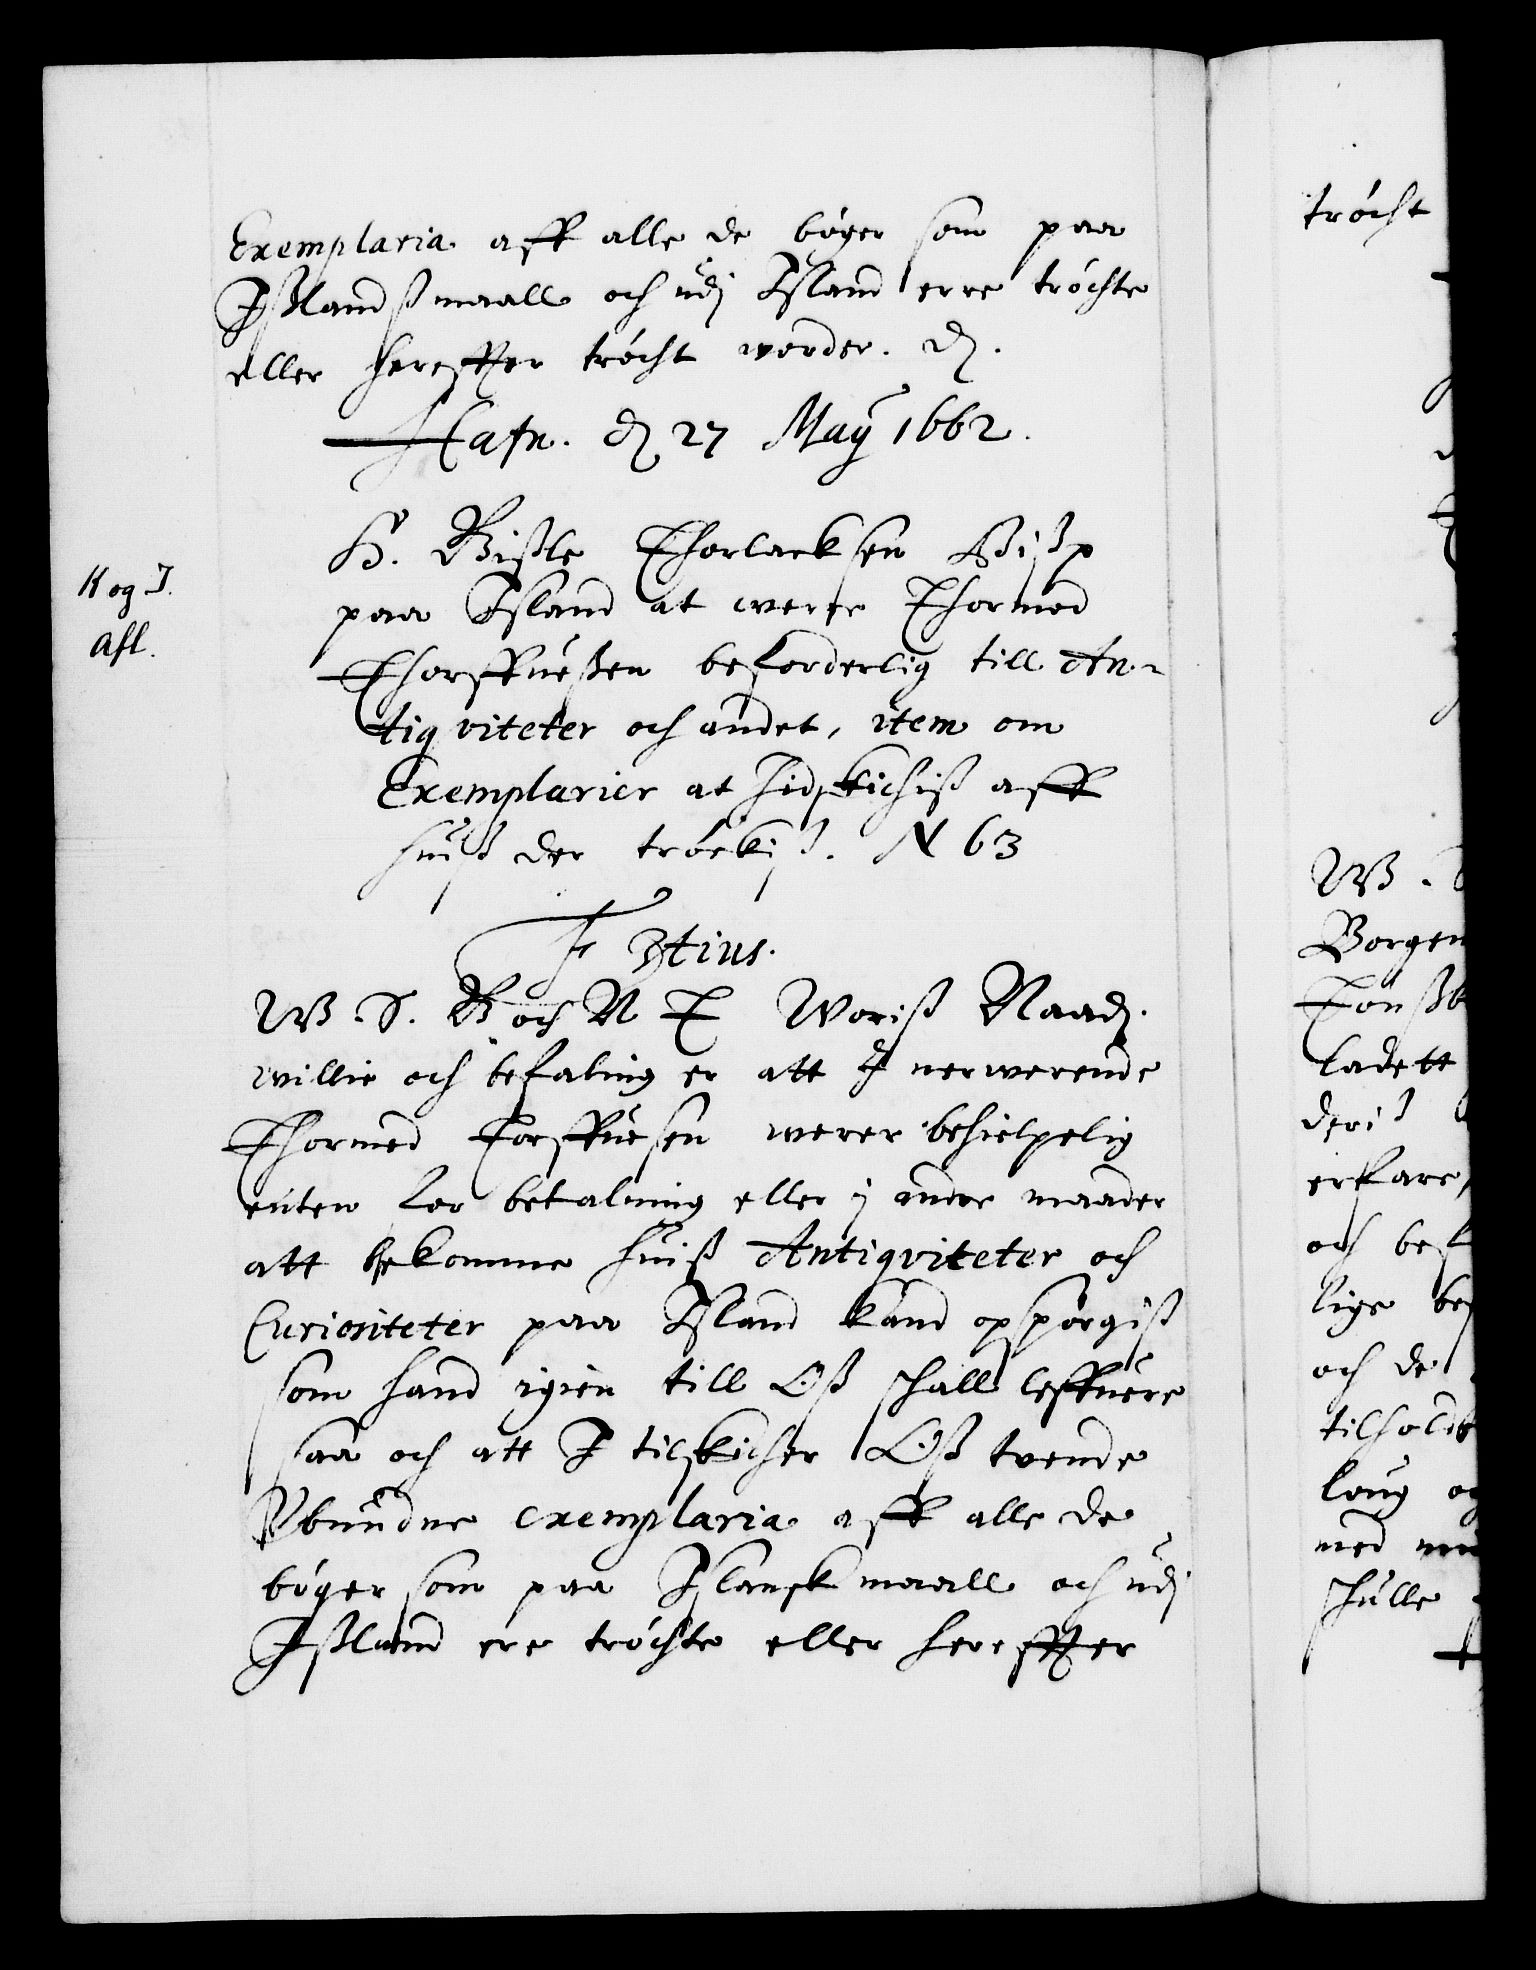 Exemplaria aff alle de bøger som paa
Ißlandßmaall och udj Island erre tröchte
eller herefter tröcht worder. D.
Hafn. D 27 Maÿ 1662.
H. Gißle Thorlacksen Bißp
paa Island at werre Thormod
Thorffueßen beforderlig till An-
tiqviteter och andet, item om
Exemplarier at hidskichiß aff
huiß der tröckiß. N 63
K og I.
Afl.
F 3tius.
W. S. G och N T Woriß Naad.
willie och befaling er att I nerwerende
Thormod Torffuesen werer behielpelig
enten for betalning eller j andre maader
att bekomme huiß Antiqviteter och
Curiositeter paa Island kand opspörgiß
som hand igien till Oß schall leffuere
saa och att I tilskicher Oß tvende
Vbundne exemplaria aff alle de
bøger som paa Islansk maall och udj
Ißland ere tröchte eller herefter
tröcht
W. S
Borgem
Tonßb
ladett
deriß
erfare,
och bef
lige bes
och de
tilhold
loug og
med
schulle